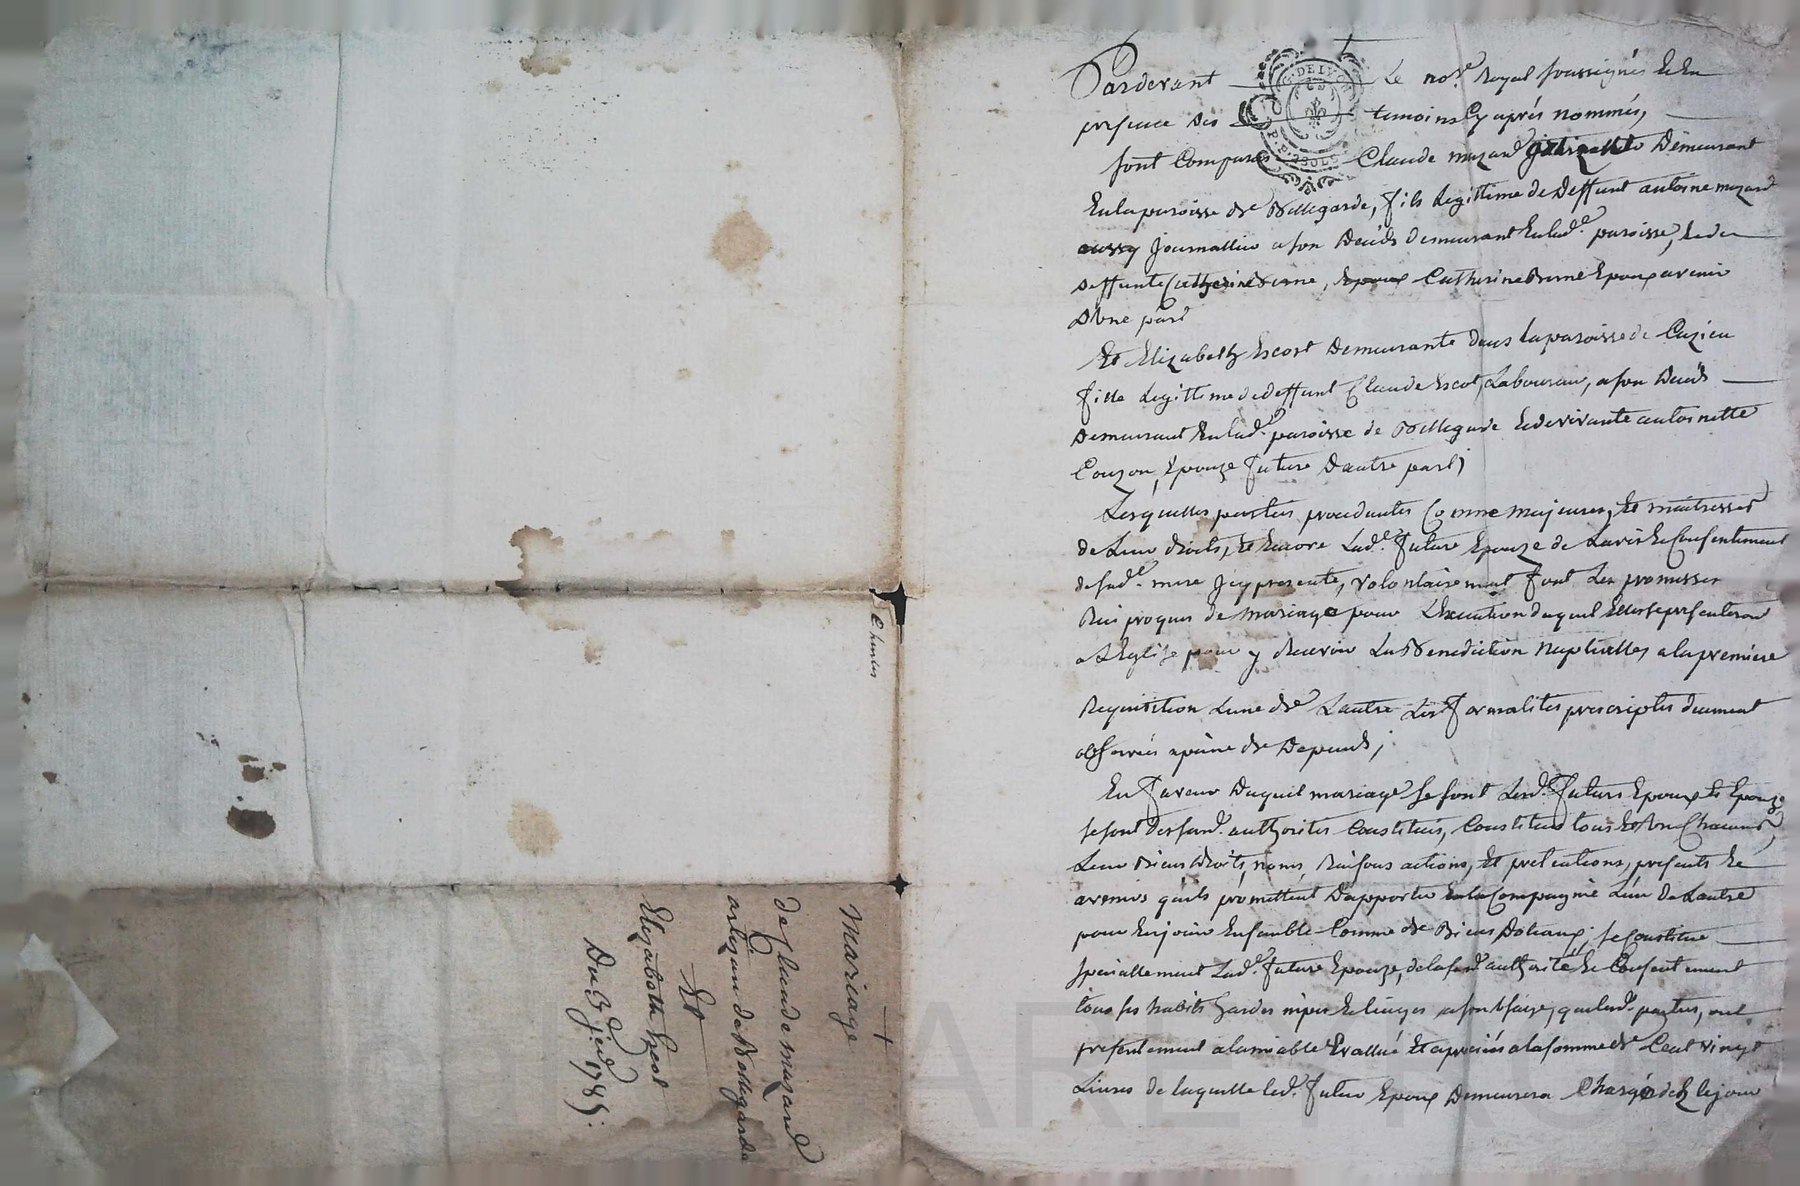 Pardevant Le no.re Royal soussignés Et En
presence des temoins Cy aprés nommés,
sont Comparus Claude muzard Demeurant
En la paroisse de Bellegarde, fils Legittime de deffunt antoine muzard
aussy journallier a son Decéds demeurant En lad.e paroisse, Et de
deffunte Catherine Berne, Epoux Catherine Berne Epoux avenir
D'Une part
Et Elizabeth Escot Demeurante dans la paroisse de Cuzieu
fille Legittime de deffunt Claude Escot, Laboureur, a son Decéds
Demeurant En lad.e paroisse de Bellegarde Et de vivante antoinette
Couzon, Epouze future D'autre part;
Lesquelles parties procedantes Comme majeures, Et maitresses
de Leur droits, Et Encore Lad.e future Epouze de L'avis Et Consentement
de sad.e mere jcy presente, volontairement font Les promesses
Reciproques de mariage pour L'Execution duquel Elles se presenteront
a L'Eglize pour y Recevoir La Benediction Nuptialle, a la premiere
Requisition L'une de L'autre Les formalités prescriptes deument
observées a peine de Depends;
En faveur Duquel mariage se sont Lesd. futurs Epoux Et Epouze
se sont des susd. authorités Constitués, Constitués tous Et Un Chacuns,
Leur Biens Droits, noms, Raisons actions, Et pretentions, presents Et
avenirs qu'ils promettent D'apporter En la Compagnie L'un de L'autre
pour En jouir Ensemble Comme de Biens Dotaux; se Constitue
specialement Lad.e future Epouze, de la susd. authorité Et Consentement
tous ses habits hardes nipes Et linges a son Usage, que lesd. parties, ont
presentement a l'amiable Evallué Et apreciés a la somme de Cent vingt
Livres de laquelle led. futur Epoux Demeurera Chargé dez le jour
Charles
+
Mariage
de Claude muzard
artizan de Bellegarde
Et
Elizabeth Escot
Du 3 1789:
G. DE LYON